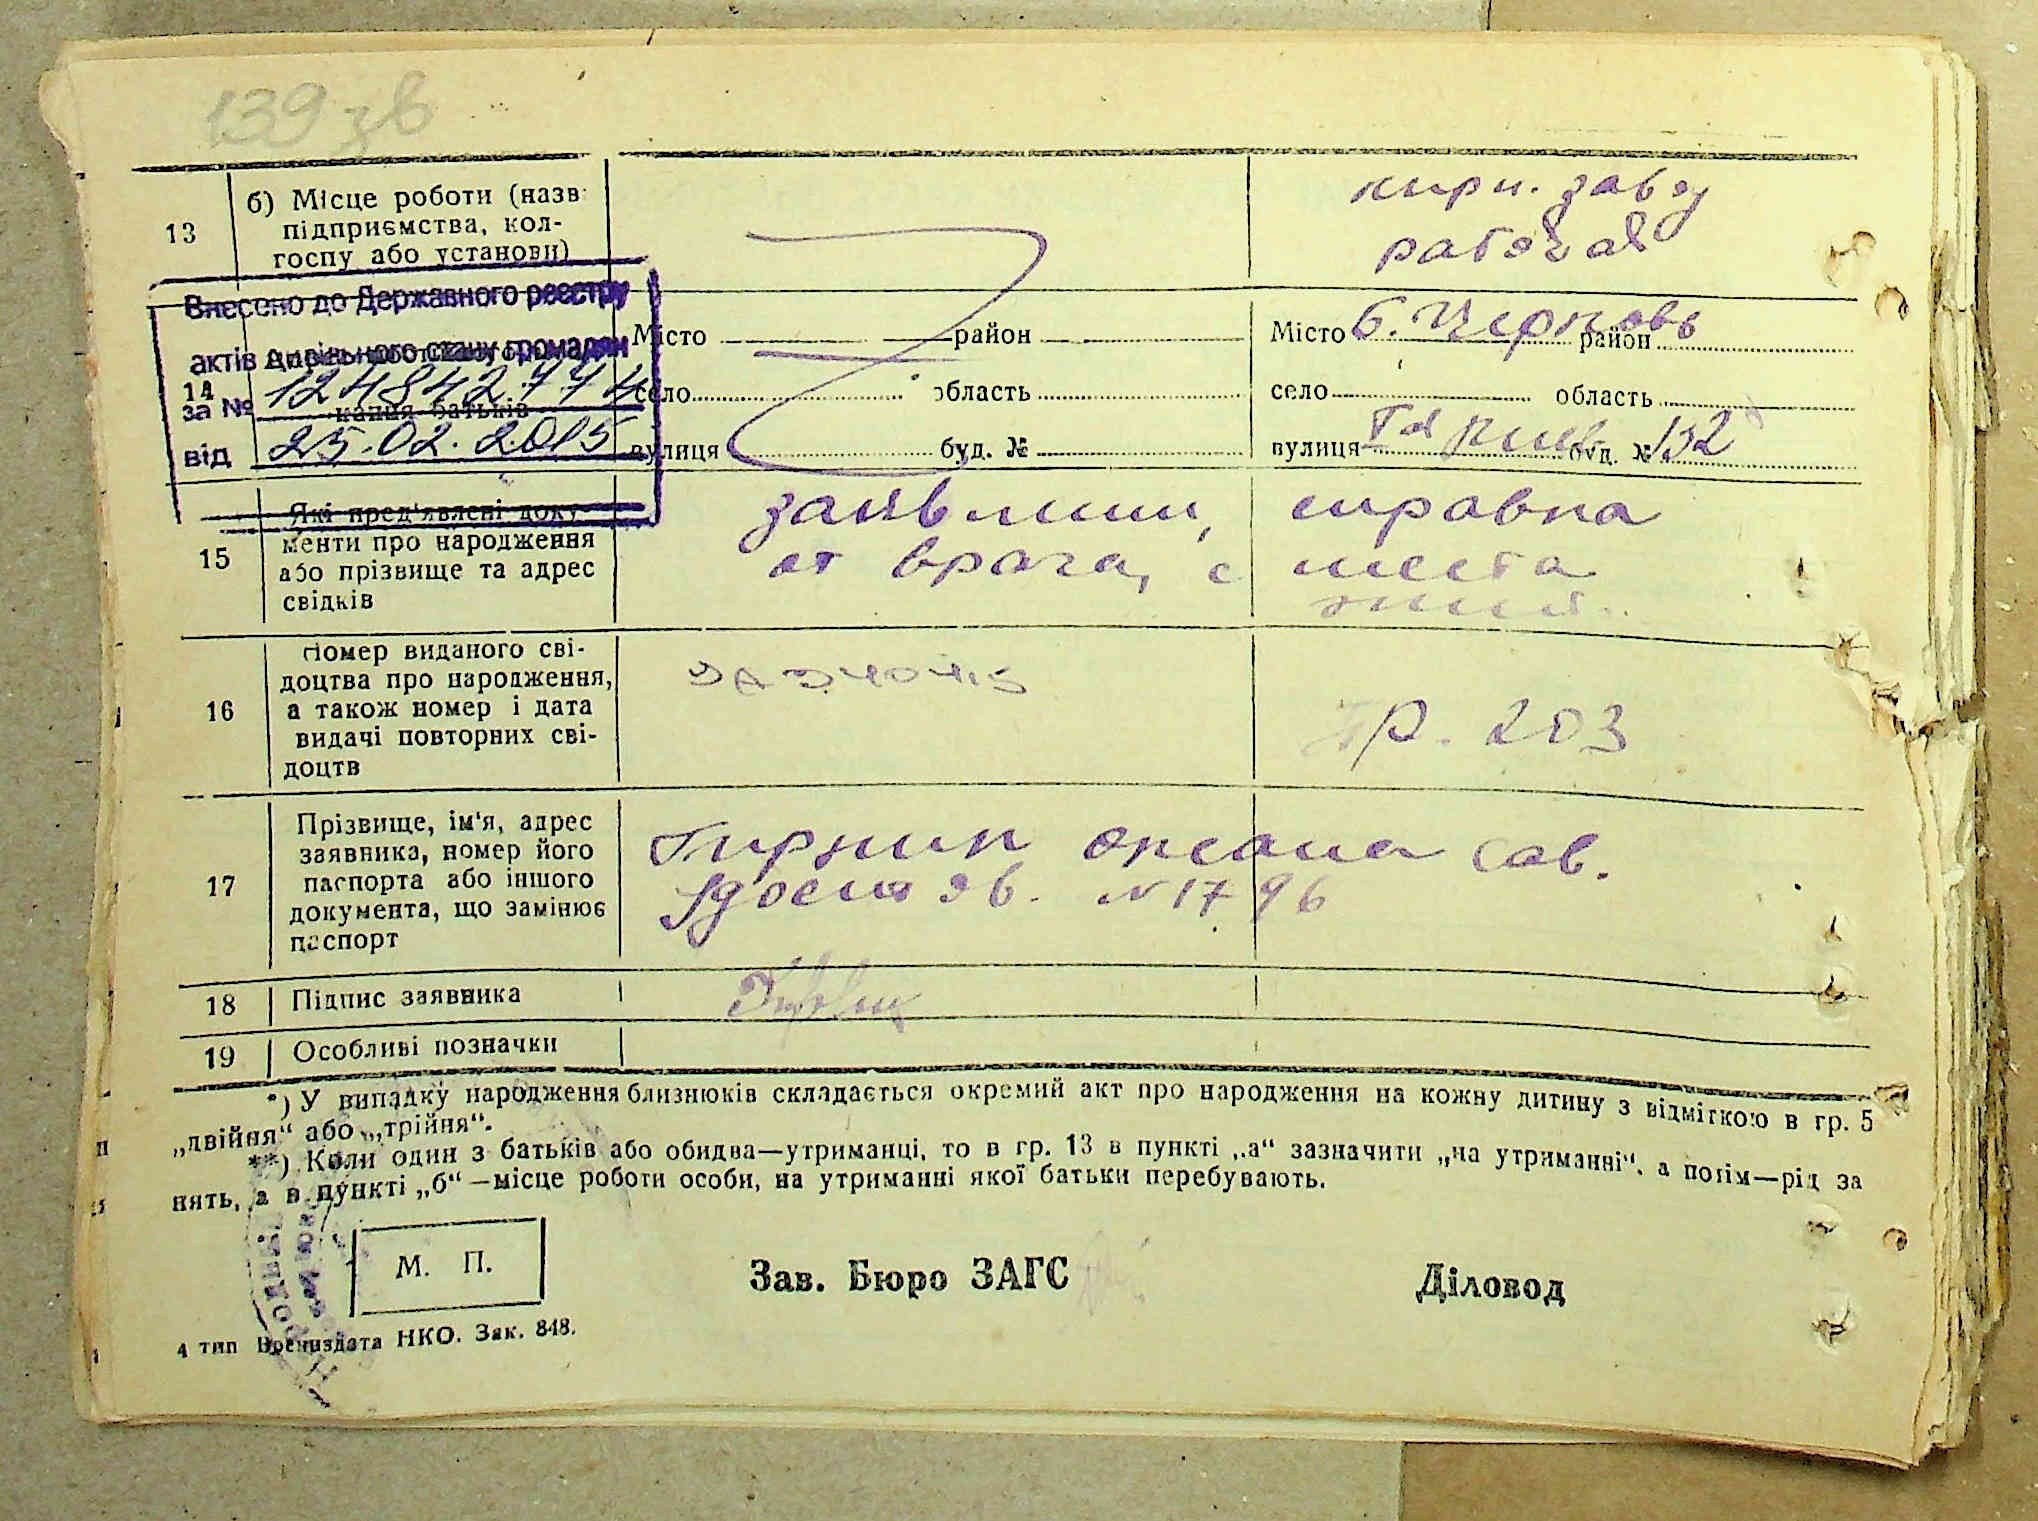 139 зв
13
б) Місце роботи (назв
підприємства, кол-
госпу або установи)
кирп. завод
рабочая
Внесено до Державного реєстру
актів цивільного стану громадян
за № 124842774
від 25.02.2015
14
кання батьків
Місто район
село область
вулиця буд. №
Місто Б. Церковь район
село область
вулиця буд. № 132
15
Які пред'явлені доку-
менти про народження
або прізвище та адрес
свідків
справка
от врача, с места
жит.
16
Номер виданого сві-
доцтва про народження,
а також номер і дата
видачі повторних сві-
доцтв
р. 203
17
Прізвище, ім'я, адрес
заявника, номер його
паспорта або іншого
документа, що замінює
паспорт
Оксана Сав.
Удостов. № 1796
18
Підпис заявника
19
Особливі позначки
*) У випадку народження близнюків складається окремий акт про народження на кожну дитину з відміткою в гр. 5
„двійня“ або „трійня“.
**) Коли один з батьків або обидва—утриманці, то в гр. 13 в пункті „а“ зазначити „на утриманні“, а потім—рід за
нять, а в пункті „б“—місце роботи особи, на утриманні якої батьки перебувають.
М. П.
Зав. Бюро ЗАГС
Діловод
4 тип Воениздата НКО. Зак. 848.